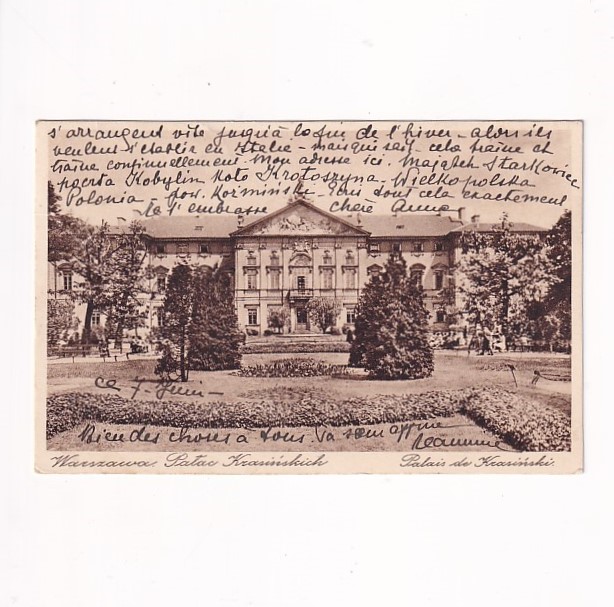 s'arrangent vite jusqu'à la fin de l'hiver - alors ils
veulent s'établir en Italie - mais qui sait - cela traine et
traîne continuellement. Mon adresse ici. Majątek Starkowiec
poczta Kobylin koło Krotoszyna - Wielkopolska
Polonia - pow. Koźmiński tout cela exactement
Je t'embrasse chère Anna
ce 7. Juin -
Bien des choses à tous. Ta
Jeanne
Warszawa. Pałac Krasińskich
Palais de Krasiński.